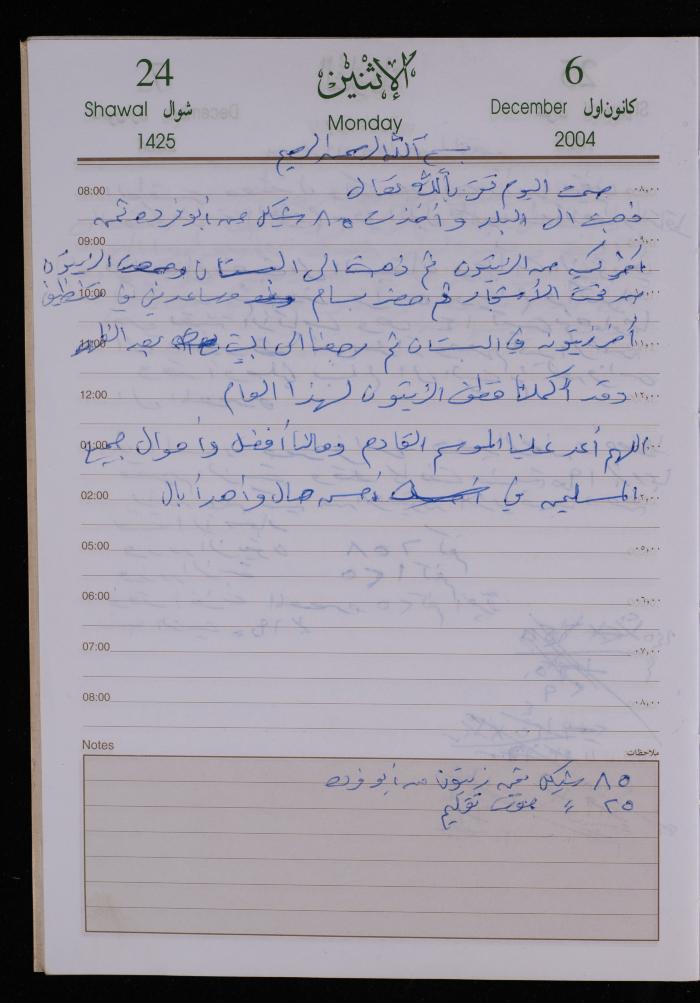 24
Shawal شوال
1425
الإثنين
Monday
6
December كانون اول
2004
بسم الله الرحمن الرحيم
08:00 صمت اليوم تقرباً لله تعالى ٠٨,٠٠
ذهبت الى البلد وأخذت ٨٥ شيكل من أبو فرده ثمن
09:00 ٠٩,٠٠
آخر كيس من الزيتون ثم ذهبت الى البستان الزيتون
10:00 تحت الأشجار ثم حضر بسام وساعدني في تنظيف
11:00 آخر زيتونه في البستان ثم رجعنا الى البيت بعد الظهر ١١,٠٠
12:00 وقد أكملنا قطف الزيتون لهذا العام ١٢,٠٠
01:00 اللهم أعد علينا الموسم القادم وحالنا أفضل وأحوال جميع
02:00 المسلمين في أحسن حال وأهدأ بال ٠٢,٠٠
05:00 ٠٥,٠٠
06:00 ٠٦,٠٠
07:00 ٠٧,٠٠
08:00 ٠٨,٠٠
Notes ملاحظات
٨٥ شيكل ثمن زيتون من أبو فرده
٢٥ =